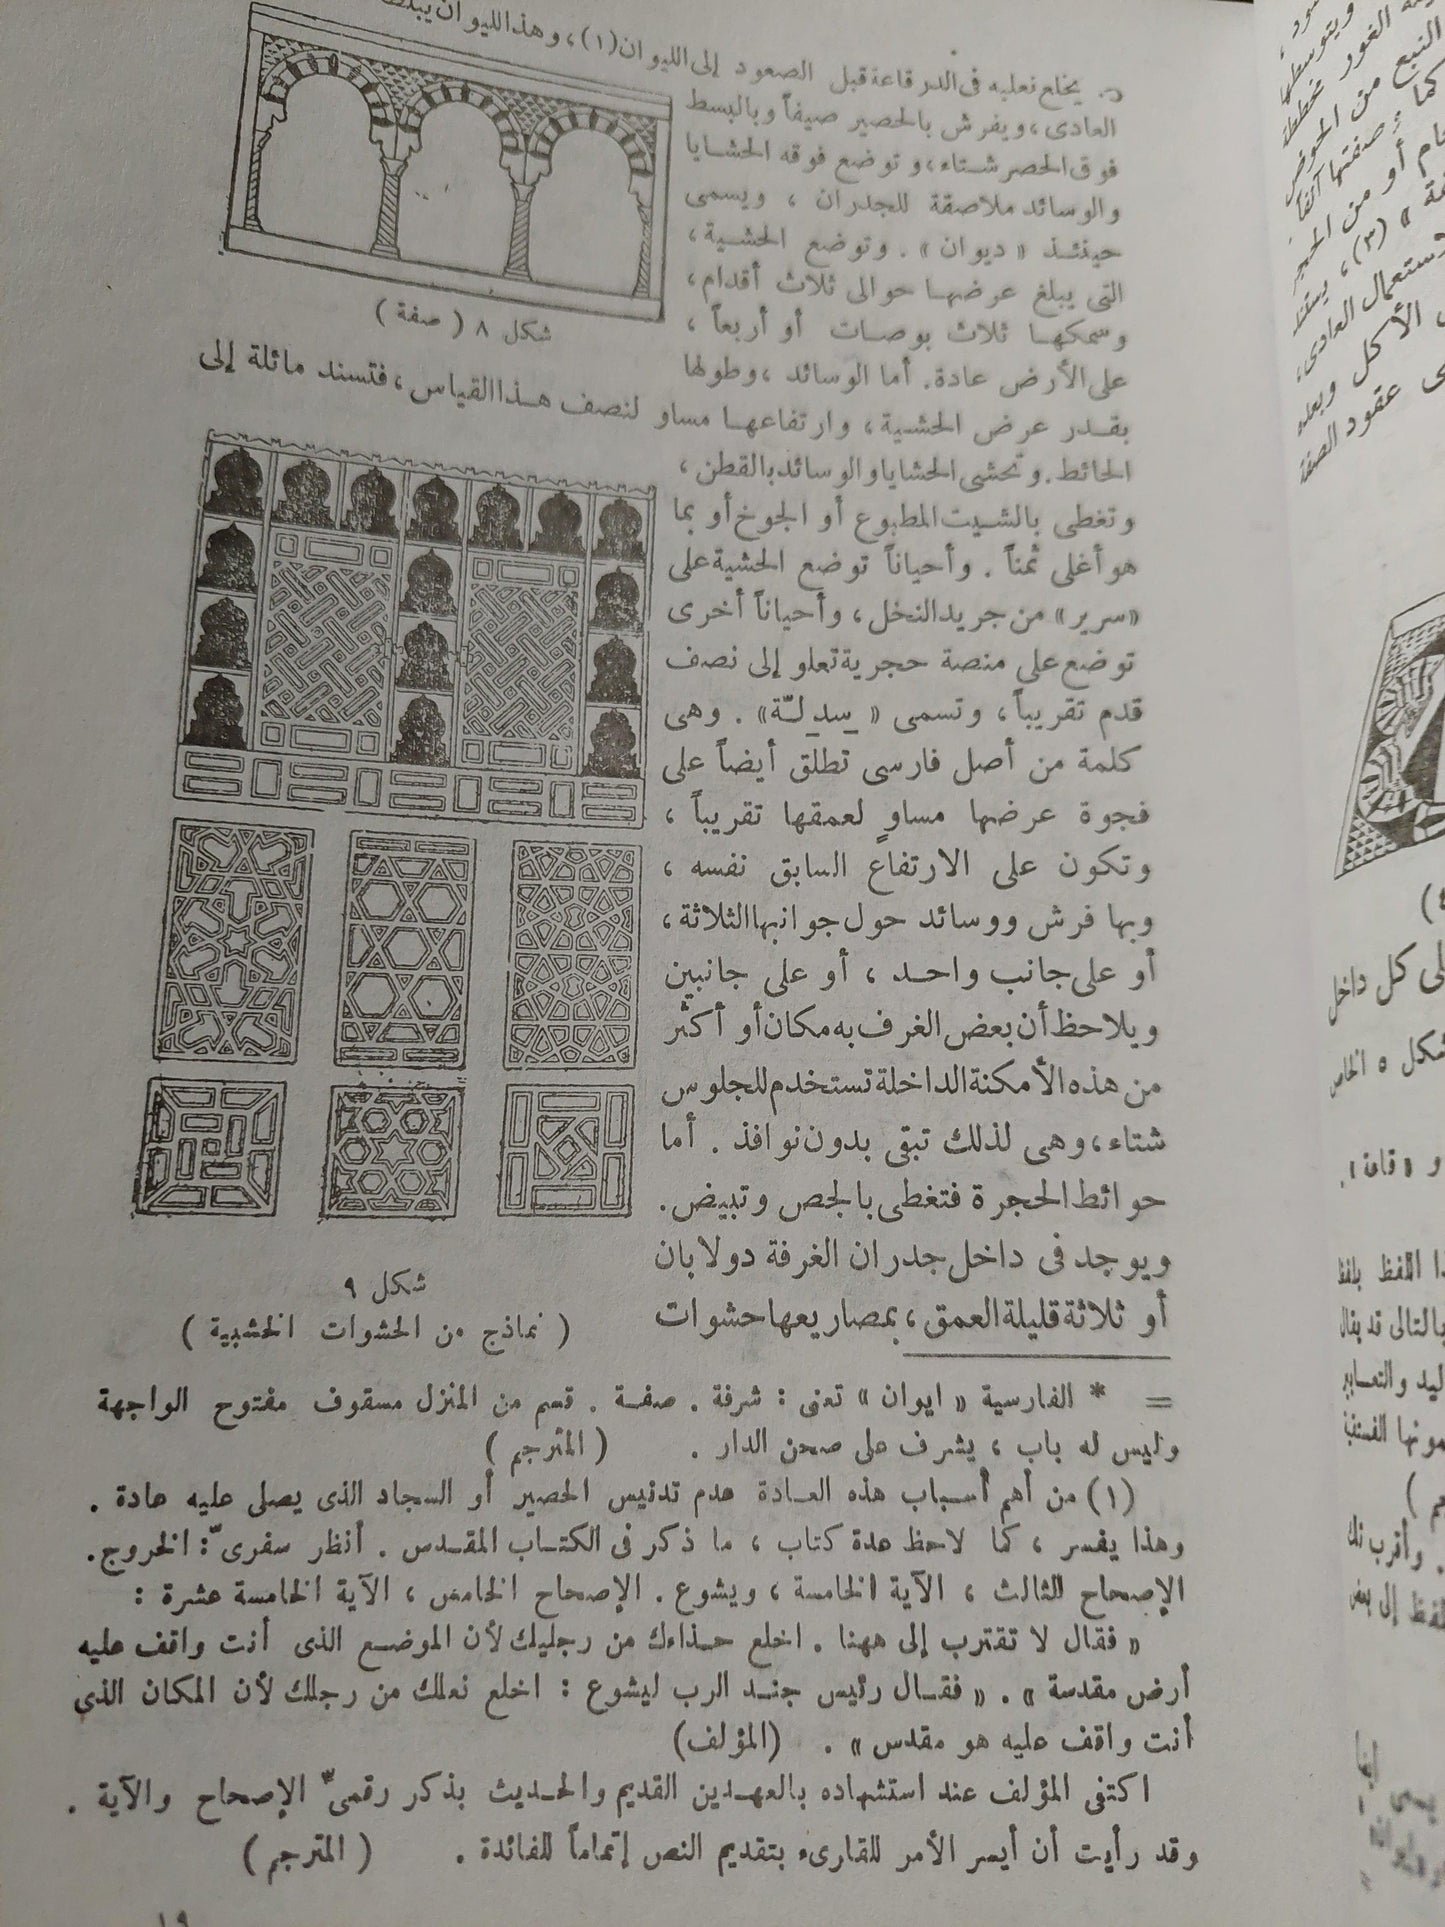 يخلع نعليه فى الدرقاعة قبل الصعود إلى الليوان (١) ، وهذا الليوان يبلط
العادى ، ويفرش بالحصير صيفاً وبالبسط
فوق الحصر شتاء ، وتوضع فوقه الحشايا
والوسائد ملاصقة للجدران ، ويسمى
حينئذ « ديوان » . وتوضع الحشية ،
التى يبلغ عرضها حوالى ثلاث أقدام ،
وسمكها ثلاث بوصات أو أربعاً ،
على الأرض عادة . أما الوسائد ، وطولها
بقدر عرض الحشية ، وارتفاعها مساو لنصف هذا القياس ، فتسند مائلة إلى
الحائط . وتحشى الحشايا والوسائد بالقطن ،
وتغطى بالشيت المطبوع أو الجوخ أو بما
هو أغلى ثمناً . وأحياناً توضع الحشية على
« سرير » من جريد النخل ، وأحياناً أخرى
توضع على منصة حجرية تعلو إلى نصف
قدم تقريباً ، وتسمى « سدلّة » . وهى
كلمة من أصل فارسى تطلق أيضاً على
فجوة عرضها مساوٍ لعمقها تقريباً ،
وتكون على الارتفاع السابق نفسه ،
وبها فرش ووسائد حول جوانبها الثلاثة ،
أو على جانب واحد ، أو على جانبين
ويلاحظ أن بعض الغرف به مكان أو أكثر
من هذه الأمكنة الداخلة تستخدم للجلوس
شتاء ، وهى لذلك تبقى بدون نوافذ . أما
حوائط الحجرة فتغطى بالجص وتبيض .
ويوجد فى داخل جدران الغرفة دولابان
أو ثلاثة قليلة العمق ، بمصاريعها حشوات
شكل ٨ ( صفة )
شكل ٩
( نماذج من الحشوات الخشبية )
= * الفارسية « ايوان » تعنى : شرفة . صفة . قسم من المنزل مسقوف مفتوح الواجهة
وليس له باب ، يشرف على صحن الدار . ( المترجم )
(١) من أهم أسباب هذه العادة عدم تدنيس الحصير أو السجاد الذى يصلى عليه عادة .
وهذا يفسر ، كما لاحظ عدة كتاب ، ما ذكر فى الكتاب المقدس . أنظر سفرىّ : الخروج .
الإصحاح الثالث ، الآية الخامسة ، ويشوع . الإصحاح الخامس ، الآية الخامسة عشرة :
« فقال لا تقترب إلى ههنا . اخلع حذاءك من رجليك لأن الموضع الذى أنت واقف عليه
أرض مقدسة » . « فقال رئيس جند الرب ليشوع : اخلع نعلك من رجلك لأن المكان الذى
أنت واقف عليه هو مقدس » . ( المؤلف )
اكتفى المؤلف عند استشهاده بالعهدين القديم والحديث بذكر رقمىّ الإصحاح والآية .
وقد رأيت أن أيسر الأمر للقارىء بتقديم النص إتماماً للفائدة . ( المترجم )
١٩
ويتوسطها
النبع من الحوض
كما صفتها آنفاً
أو من الحجر
(٣) ، يستند
الاستعمال العادى ،
الأكل وبعده
عقود الصفة
كل داخل
شكل ٥ الخاص
و « قاعة » .
اللفظ بلفظ
بالتالى قد يقال